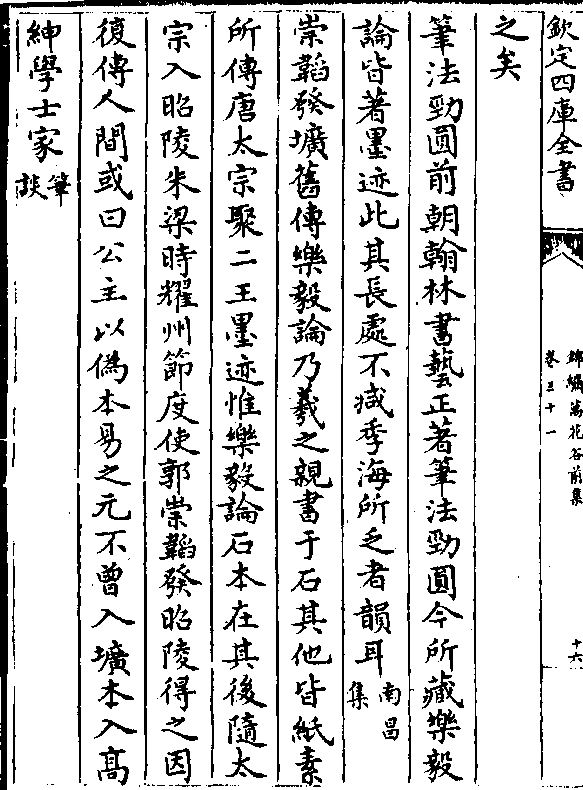 欽定四庫全書
錦繡萬花谷前集
卷三十一
十六
之矣
筆法勁圓前朝翰林書藝正著筆法勁圓今所藏樂毅
論皆著墨迹此其長處不減季海所乏者韻耳南昌集
崇韜發壙舊傳樂毅論乃羲之親書于石其他皆紙素
所傳唐太宗聚二王墨迹惟樂毅論石本在其後隨太
宗入昭陵朱梁時耀州節度使郭崇韜發昭陵得之因
復傳人間或曰公主以偽本易之元不曾入壙本入高
紳學士家筆談